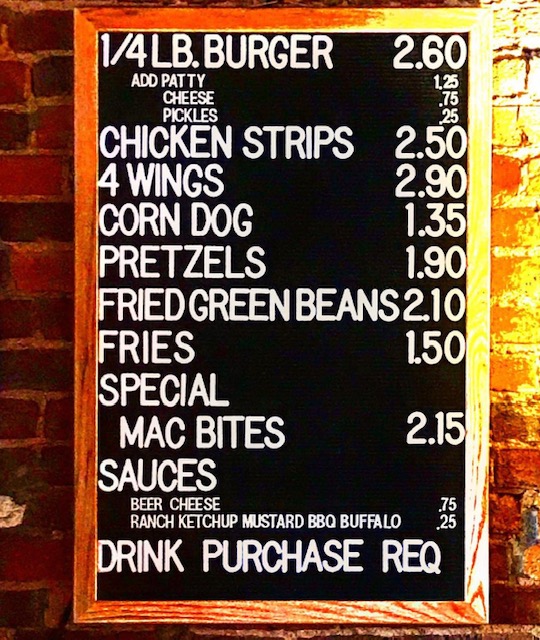 1/4 LB. BURGER 2.60
ADD PATTY 1.25
CHEESE .75
PICKLES .25
CHICKEN STRIPS 2.50
4 WINGS 2.90
CORN DOG 1.35
PRETZELS 1.90
FRIED GREEN BEANS 2.10
FRIES 1.50
SPECIAL
MAC BITES 2.15
SAUCES
BEER CHEESE .75
RANCH KETCHUP MUSTARD BBQ BUFFALO .25
DRINK PURCHASE REQ